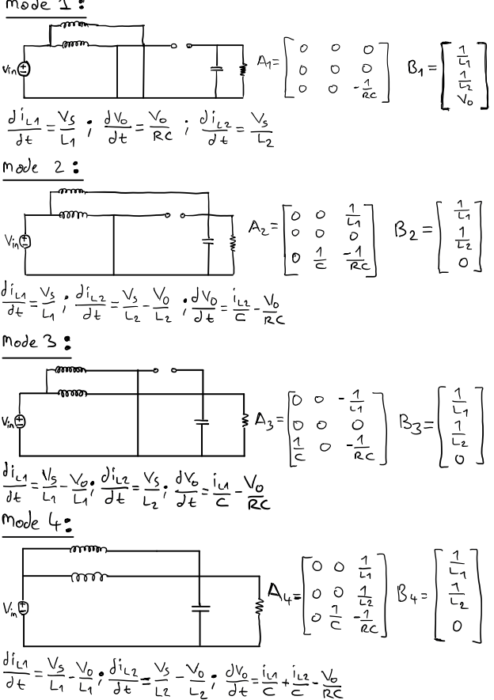 mode 1:
Vin
A1= [ 0 0 0 ; 0 0 0 ; 0 0 -1/RC ] B1= [ 1/L1 ; 1/L2 ; V0 ]
diL1/dt = Vs/L1 ; dVo/dt = Vo/RC ; diL2/dt = Vs/L2
mode 2:
Vin
A2= [ 0 0 1/L1 ; 0 0 0 ; 0 1/C -1/RC ] B2= [ 1/L1 ; 1/L2 ; 0 ]
diL1/dt = Vs/L1 ; diL2/dt = Vs/L2 - Vo/L2 ; dVo/dt = iL2/C - Vo/RC
mode 3:
Vin
A3= [ 0 0 -1/L1 ; 0 0 0 ; 1/C 0 -1/RC ] B3= [ 1/L1 ; 1/L2 ; 0 ]
diL1/dt = Vs/L1 - Vo/L1 ; diL2/dt = Vs/L2 ; dVo/dt = iL1/C - Vo/RC
mode 4:
Vin
A4= [ 0 0 1/L1 ; 0 0 1/L2 ; 0 1/C -1/RC ] B4= [ 1/L1 ; 1/L2 ; 0 ]
diL1/dt = Vs/L1 - Vo/L1 ; diL2/dt = Vs/L2 - Vo/L2 ; dVo/dt = iL1/C + iL2/C - Vo/RC